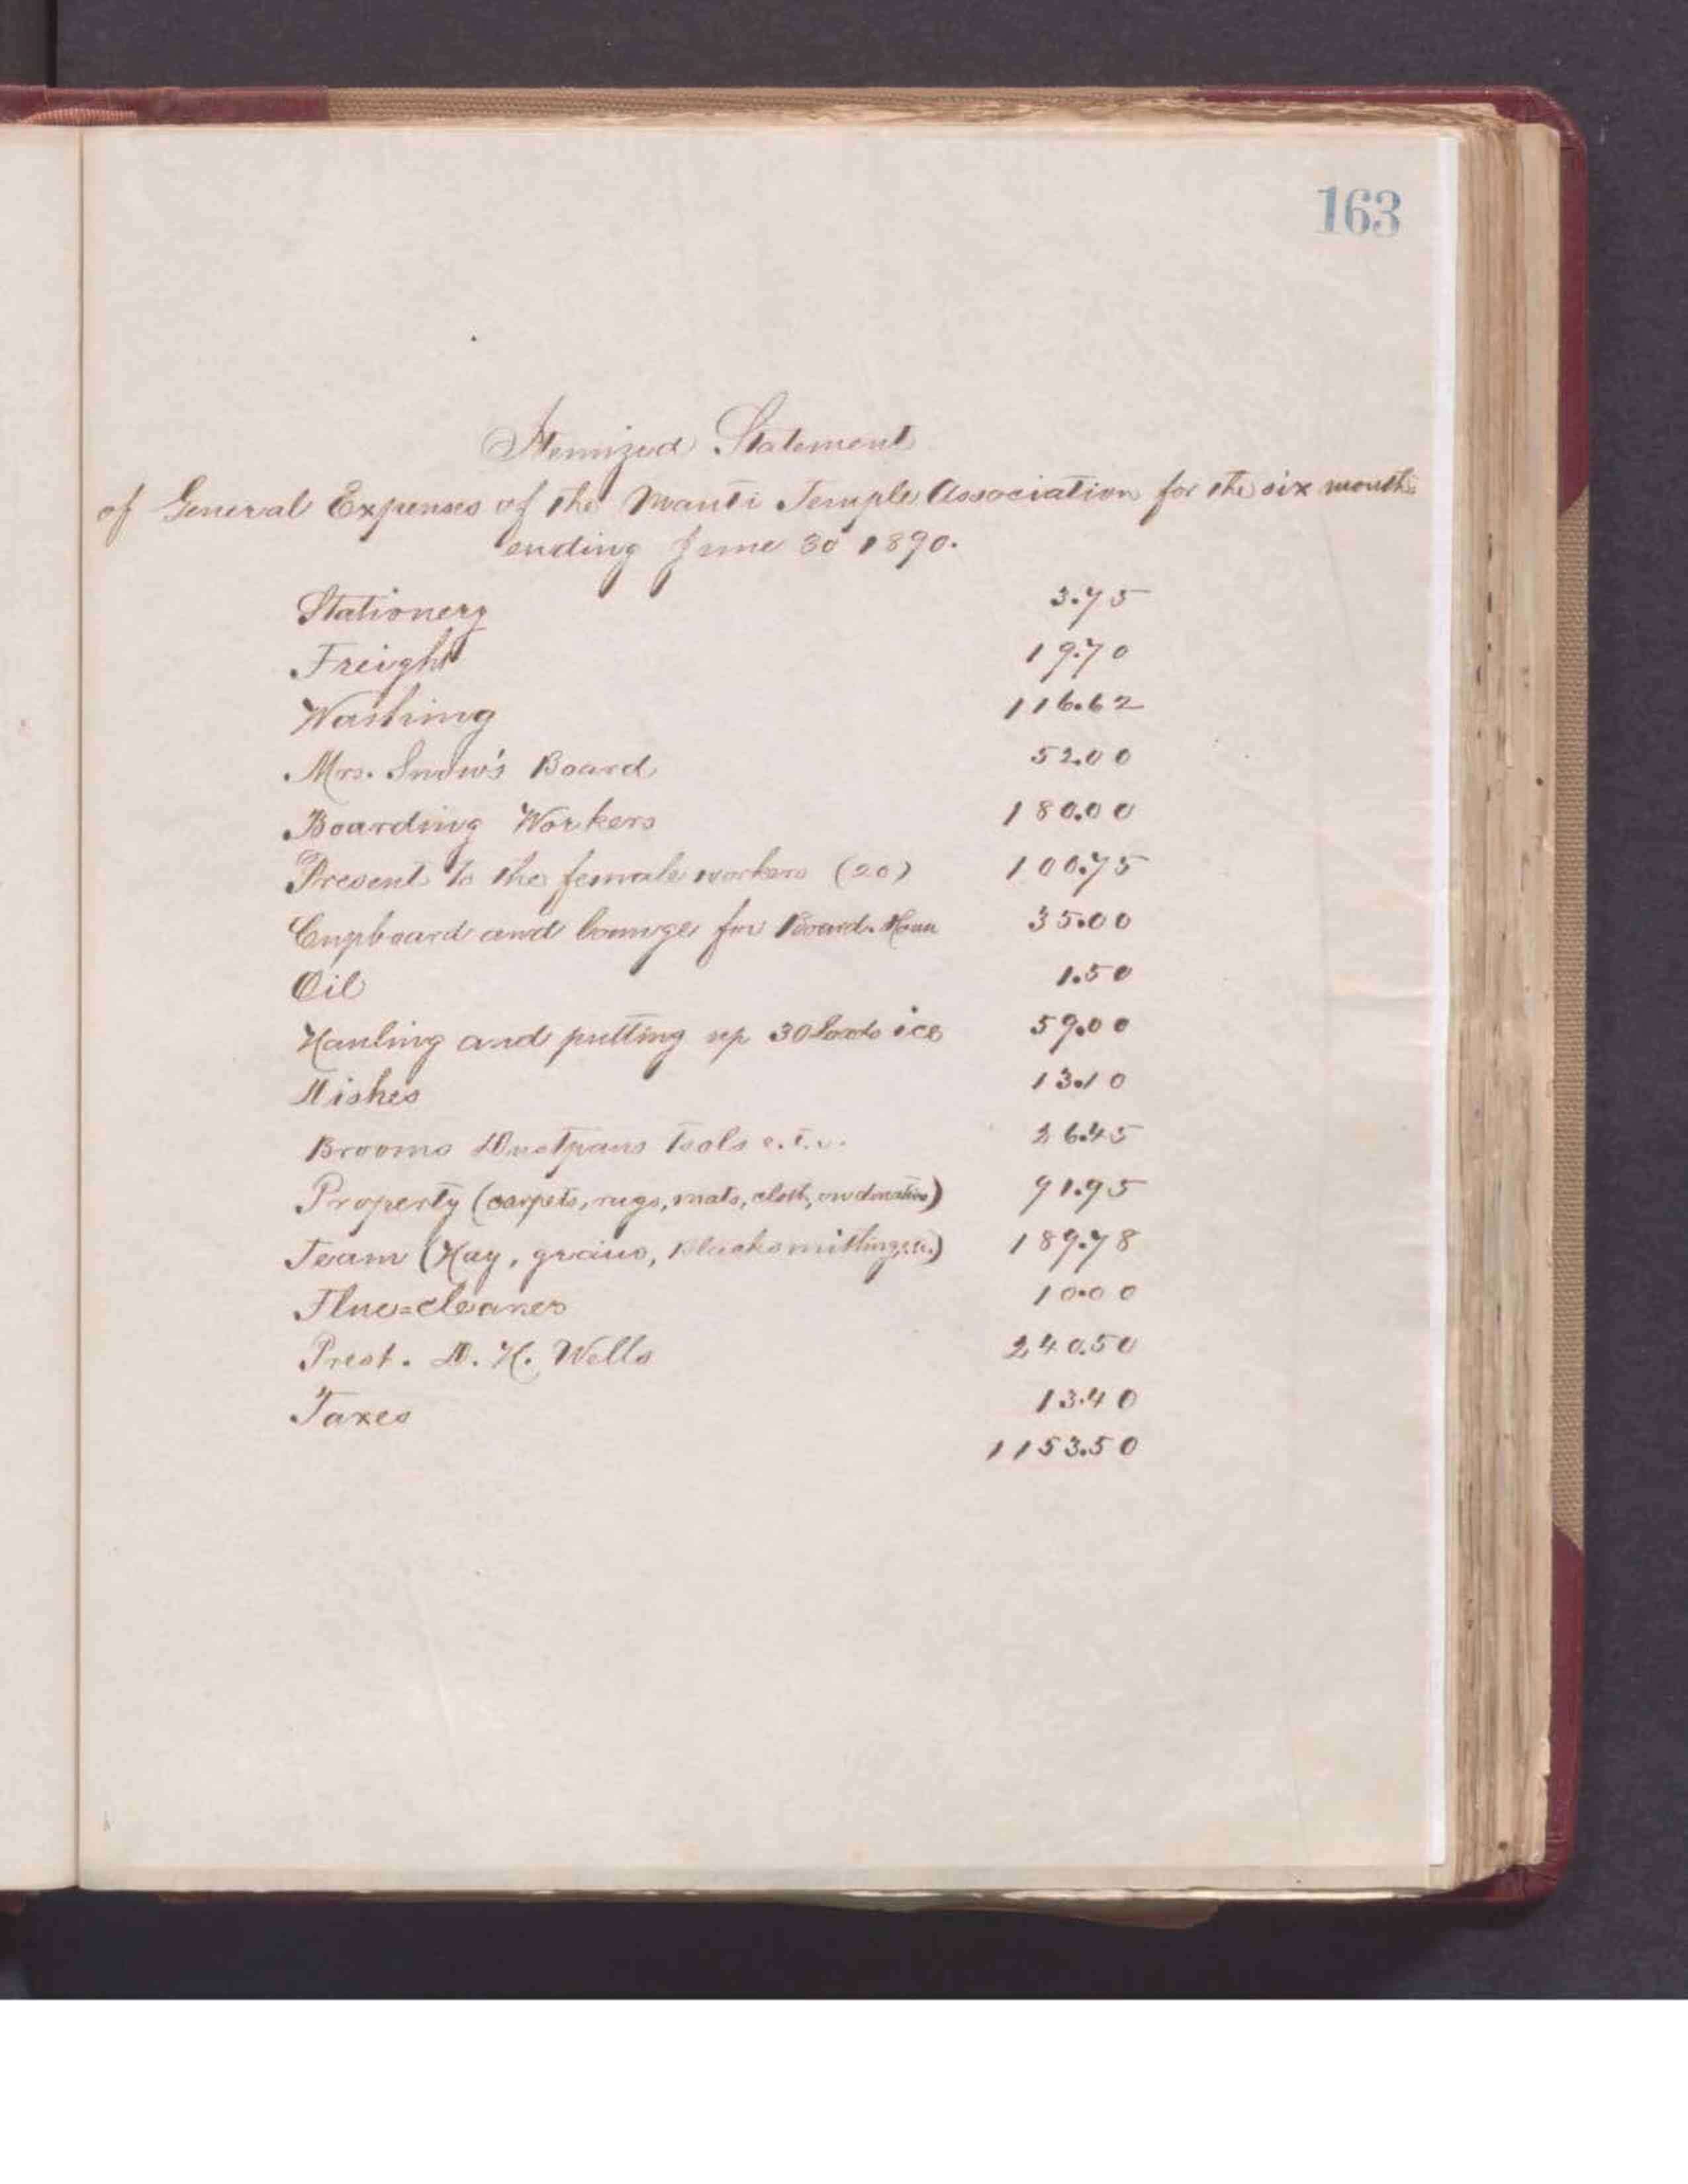 163
Itemized Statement
of General Expenses of the Manti Temple Association for the six months
ending June 30 1890.
Stationery 3.75
Freight 19.70
Washing 116.62
Mrs. Snow's Board 52.00
Boarding Workers 180.00
Present to the female workers (20) 100.75
Cupboard and lounge for Board. House 35.00
Oil 1.50
Hauling and putting up 30 loads ice 59.00
Dishes 13.10
Brooms Dustpans Tools e.t.c. 26.45
Property (carpets, rugs, mats, cloth, on donation) 91.95
Team (Hay, grain, Blacksmithing, etc.) 189.78
Flue=cleaner 10.00
Prest. D. H. Wells 240.50
Taxes 13.40
1153.50